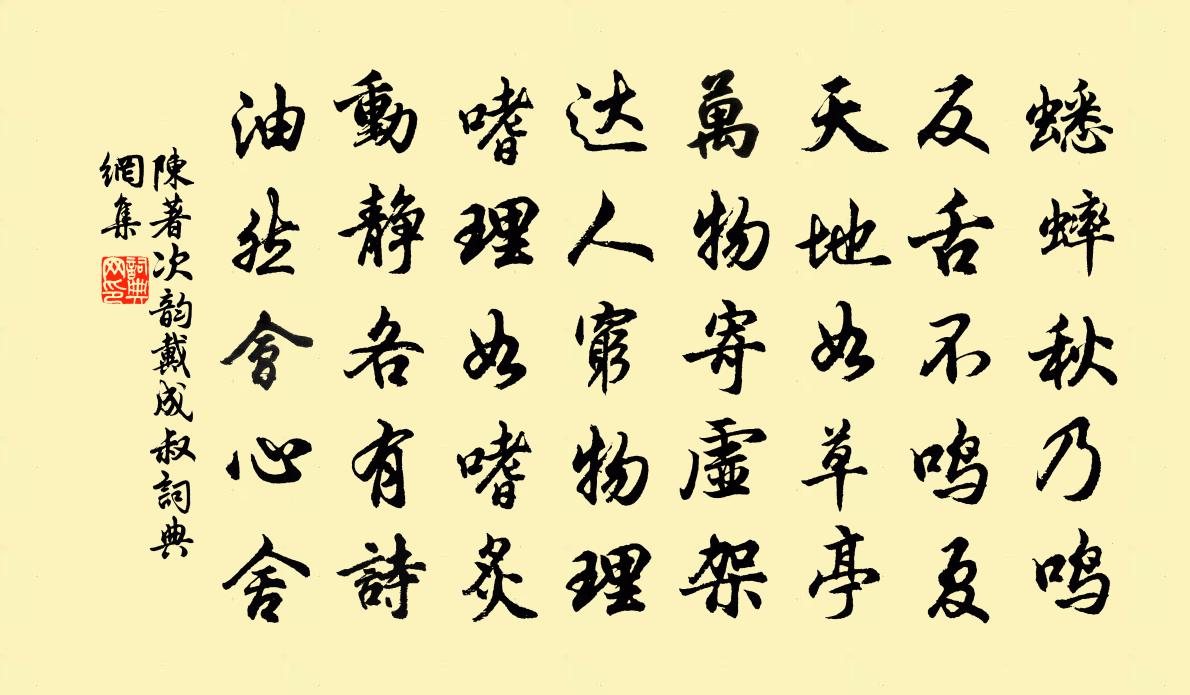 蟋蟀秋乃鸣
反舌不鸣夏
天地如草亭
萬物寄虛架
达人窮物理
嗜理如嗜炙
動静各有詩
油然會心舍
陳著次韵戴成叔詞典
網集
詞典
网印